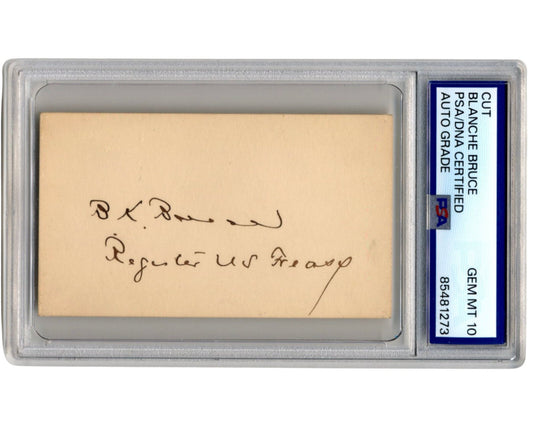 B.K. Bruce
Register U S Treasy
CUT
BLANCHE BRUCE
PSA/DNA CERTIFIED
AUTO GRADE
PSA
GEM MT 10
85481273